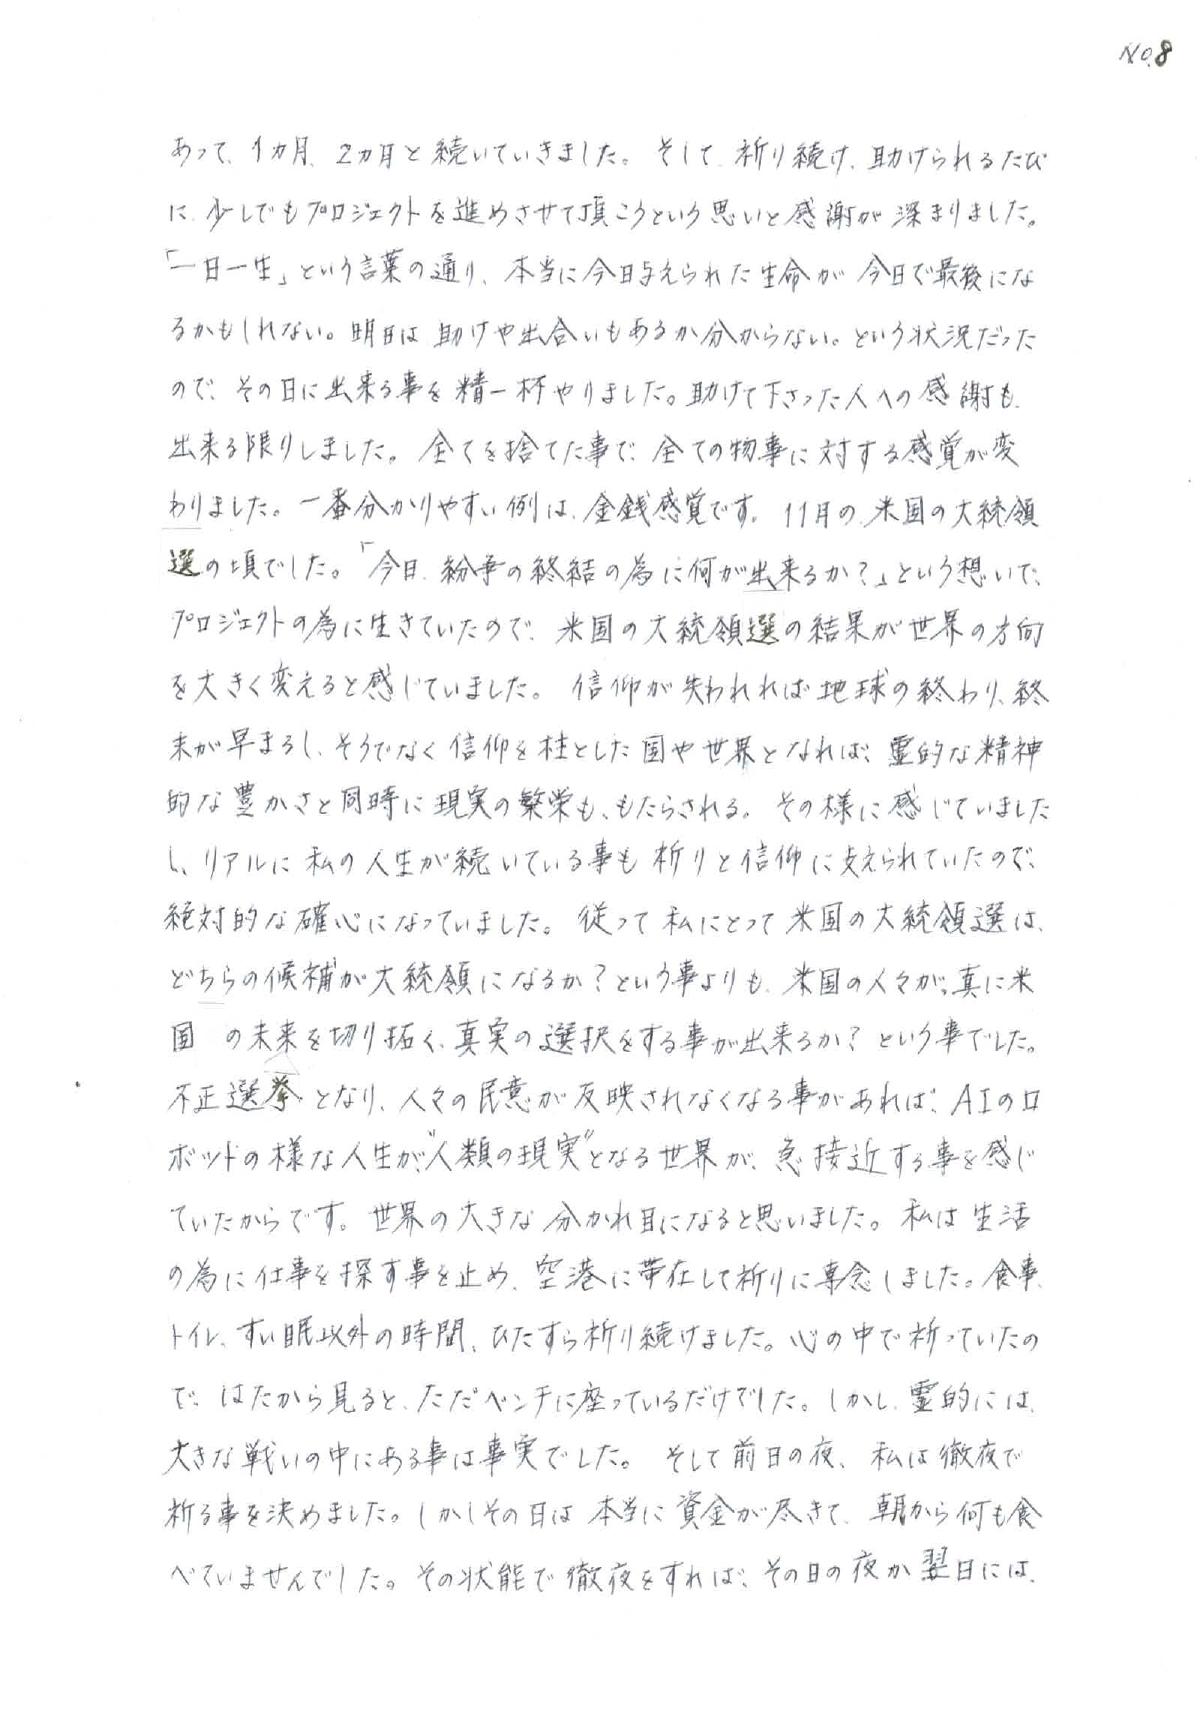 No.8
あって、1カ月、2カ月と続いていきました。そして、祈り続け、助けられるたび
に、少しでもプロジェクトを進めさせて頂こうという思いと感謝が深まりました。
「一日一生」という言葉の通り、本当に今日与えられた生命が今日で最後にな
るかもしれない。明日は助けや出合いもあるか分からない。という状況だった
ので、その日に出来る事を精一杯やりました。助けて下さった人への感謝も、
出来る限りしました。全てを捨てた事で、全ての物事に対する感覚が変
わりました。一番分かりやすい例は、金銭感覚です。11月の、米国の大統領
選の頃でした。「今日、紛争の終結の為に何が出来るか?」という想いで、
プロジェクトの為に生きていたので、米国の大統領選の結果が世界の方向
を大きく変えると感じていました。信仰が失われれば地球の終わり、終
末が早まるし、そうでなく信仰を柱とした国や世界となれば、霊的な精神
的な豊かさと同時に現実の繁栄も、もたらされる。その様に感じていました
し、リアルに私の人生が続いている事も祈りと信仰に支えられていたので、
絶対的な確心になっていました。従って私にとって米国の大統領選は、
どちらの候補が大統領になるか?という事よりも、米国の人々が、真に米
国 の未来を切り拓く、真実の選択をする事が出来るか?という事でした。
不正選挙となり、人々の民意が反映されなくなる事があれば、AIのロ
ボッドの様な人生が、“人類の現実”となる世界が、急接近する事を感じ
ていたからです。世界の大きな分かれ目になると思いました。私は生活
の為に仕事を探す事を止め、空港に帯在して祈りに専念しました。食事、
トイレ、すい眠以外の時間、ひたすら祈り続けました。心の中で祈っていたの
で、はたから見ると、ただベンチに座っているだけでした。しかし、霊的には、
大きな戦いの中にある事は事実でした。そして前日の夜、私は徹夜で
祈る事を決めました。しかしその日は本当に資金が尽きて、朝から何も食
べていませんでした。その状能で徹夜をすれば、その日の夜か翌日には、